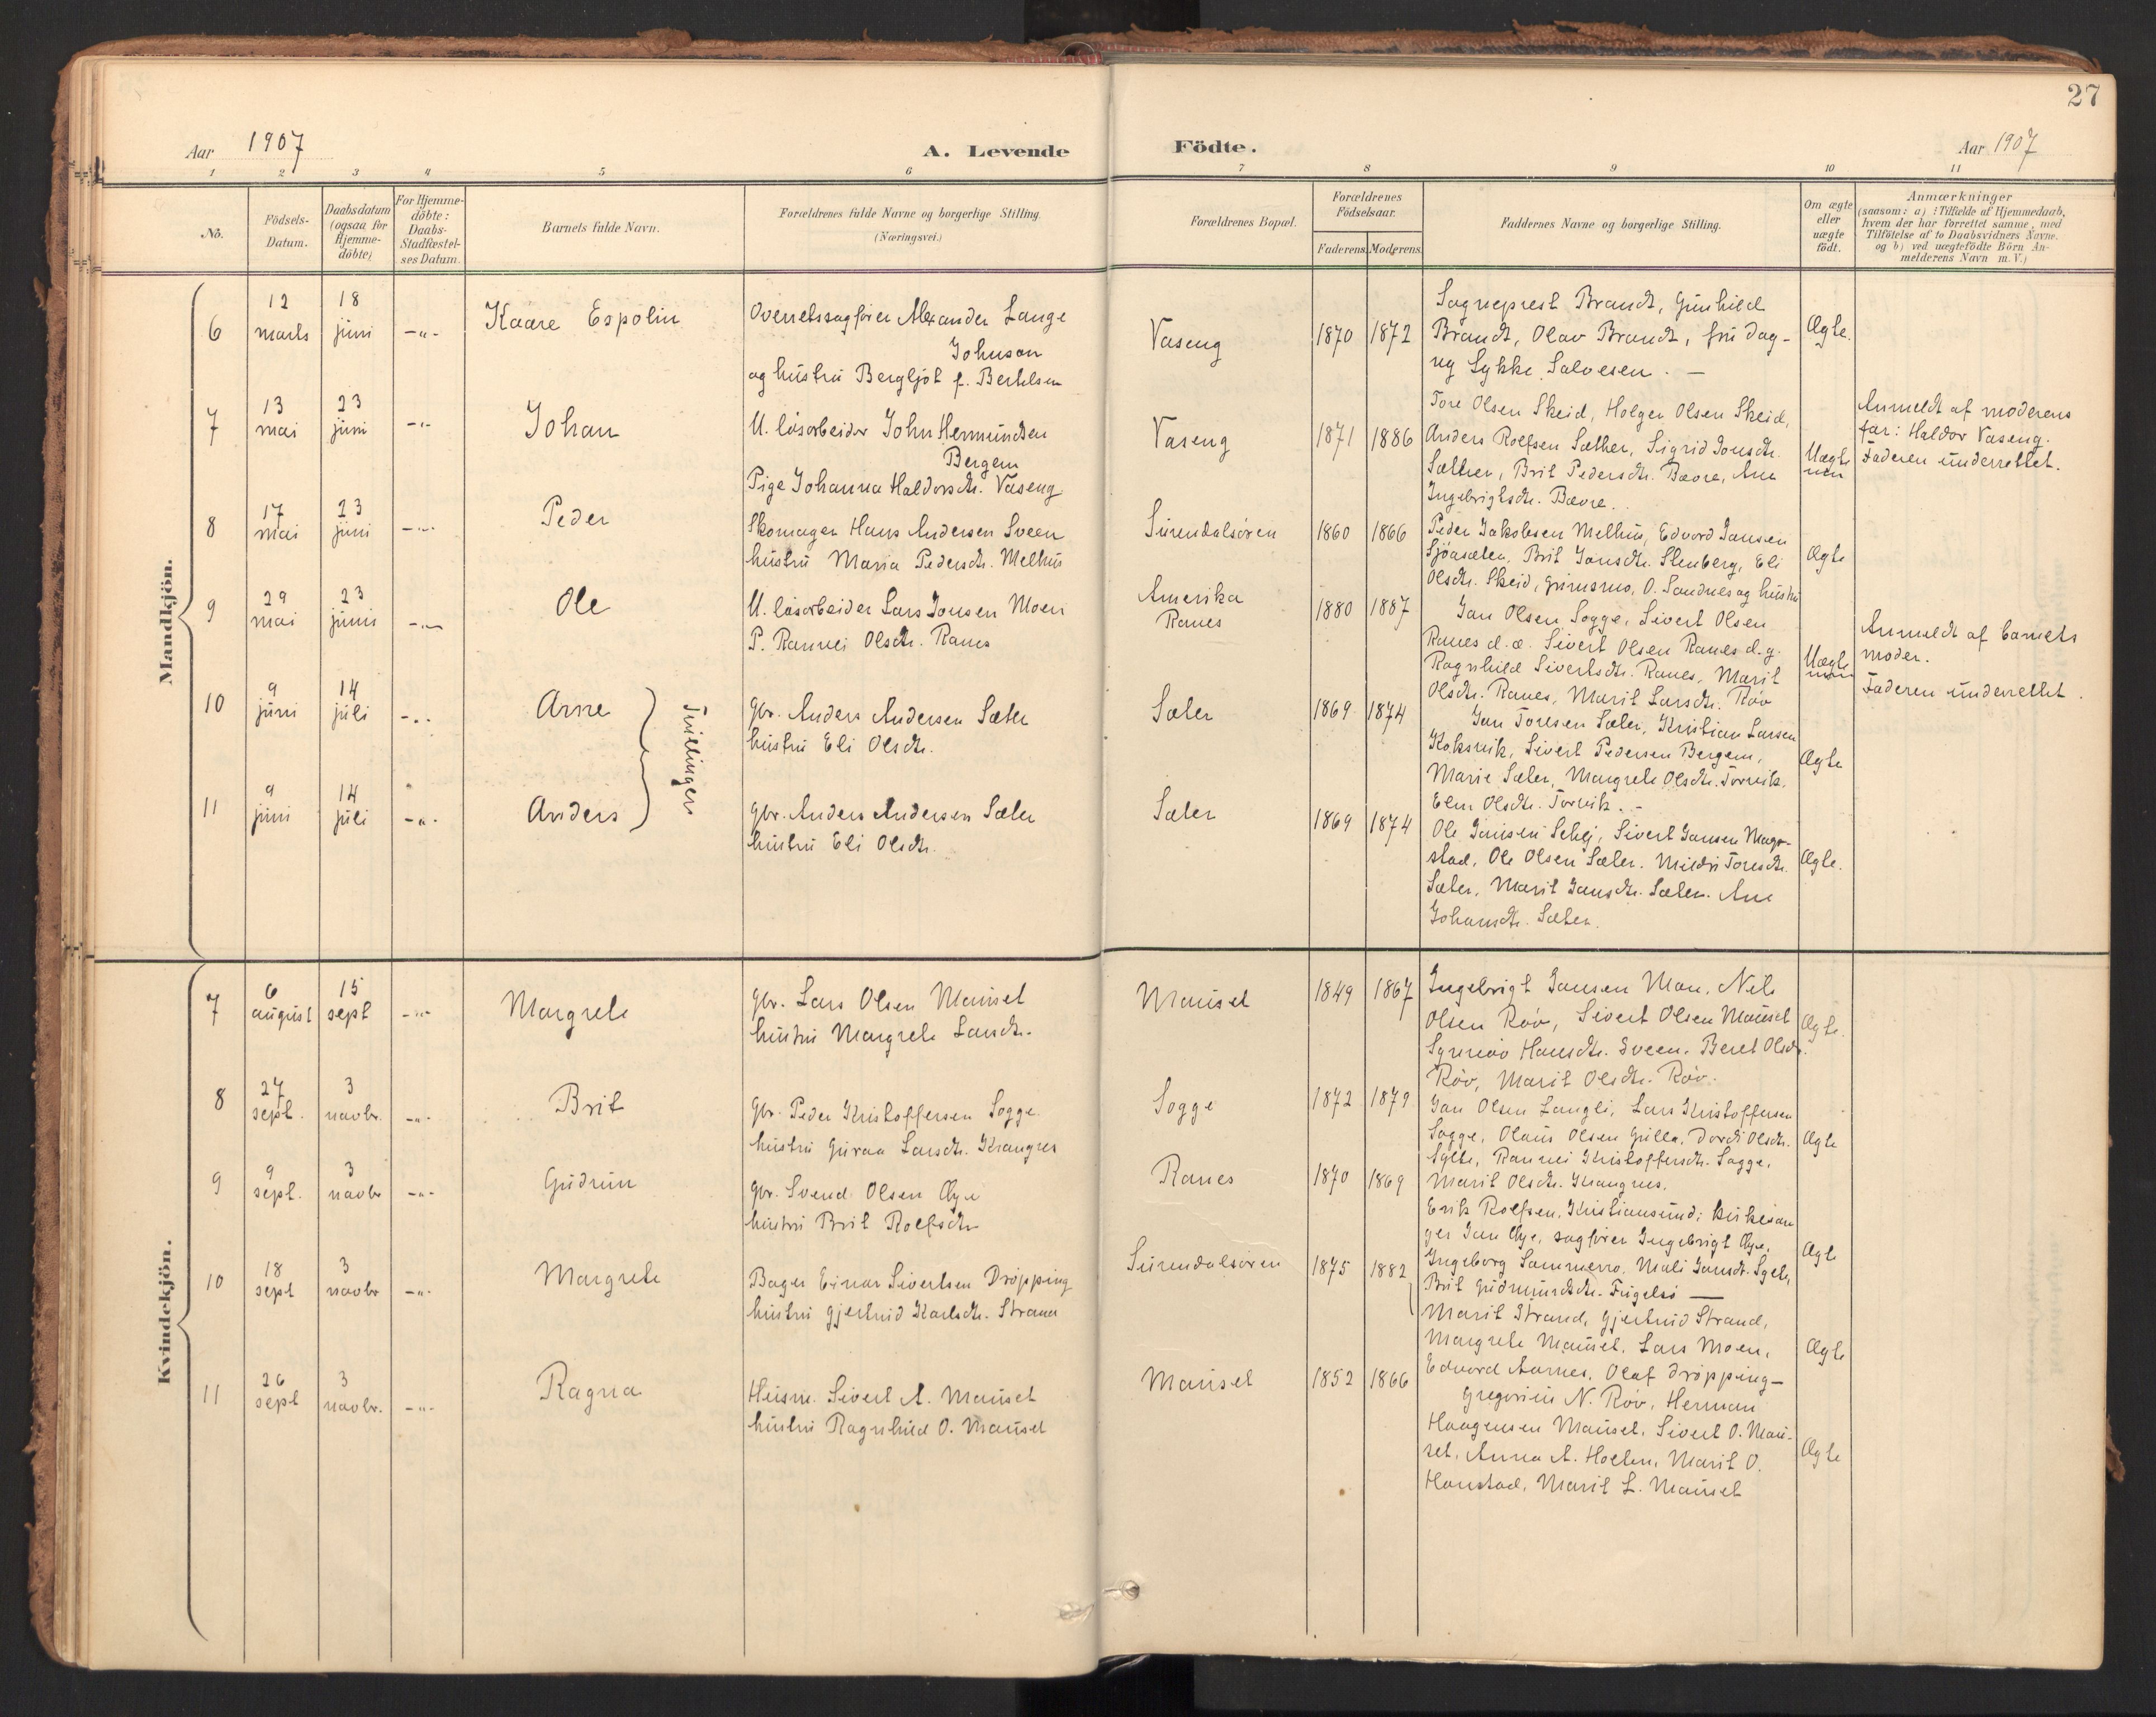 27
Aar 1907
A. Levende
Födte.
Aar 1907
1 2 3 4 5 6 7 8 9 10 11
No.
Födsels-
Datum.
Daabsdatum
(ogsaa for
Hjemme-
döbte)
For Hjemme-
döbte:
Daabs-
Stadfæstel-
ses Datum.
Barnets fulde Navn.
Forældrenes fulde Navne og borgerlige Stilling.
(Næringsvei.)
Forældrenes Bopæl.
Forældrenes
Födselsaar.
Faderens Moderens
Faddernes Navne og borgerlige Stilling.
Om ægte
eller
uægte
födt.
Anmærkninger
(saasom: a) i Tilfælde af Hjemmedaab,
hvem der har forrettet samme, med
Tilföielse af to Daabsvidners Navne.
og b) ved uægtefödte Börn An-
melderens Navn m. V.)
Mandkjön.
6
12
marts
18
juni
-"-
Kaare Espolin
Overretssagfører Alexander Lange
Johnson
og hustru Bergljot f. Bertelsen
Vaseng
1870
1872
Sogneprest Brandt, Gunhild
Brandt, Olav Brandt, fru Dag-
ny Lykke Salvesen. —
Ægte.
7
13
mai
23
juni
-"-
Johan
U. løsarbeider John Hermundsen
Bergem
Pige Johanna Haldorsdtr. Vaseng
Vaseng
1871
1886
Tore Olsen Skeid, Holger Olsen Skeid,
Anders Rolfsen Sæther, Sigrid Jonsdtr.
Sæther, Brit Pedersdtr. Bævre, Ane
Ingebrigtsdtr. Bævre.
Uægte
Anmeldt af moderens
far: Haldor Vaseng.
Faderen underrettet.
8
17
mai
23
juni
-"-
Peder
Skomager Hans Andersen Sveen
hustru Maria Pedersdtr. Melhus
Surendalsøren
1860
1866
Peder Jakobsen Melhus, Edvard Jansen
Sjøasæter, Brit Jonsdtr. Stenberg, Eli
Olsdtr. Skeid, O. Sandnes og hustru
Ægte
9
29
mai
23
juni
-"-
Ole
U. løsarbeider Lars Jonsen Moen
P. Rannei Olsdtr. Ranes
Amerika
Ranes
1880
1887
Jan Olsen Sogge, Sivert Olsen
Ranes d.æ. Sivert Olsen Ranes d.y.
Ragnhild Sivertsdtr. Ranes, Marit
Olsdtr. Ranes, Marit Larsdtr. Røv
Uægte
Anmeldt af barnets
moder.
Faderen underrettet.
10
9
juni
14
juli
-"-
Arne
Tvillinger
gbr. Anders Andersen Sæter
hustru Eli Olsdtr.
Sæter
1869
1874
Jan Toresen Sæter, Kristian Larsen
Koksvik, Sivert Pedersen Bergem,
Marie Sæter, Margrete Olsdtr. Torvik,
Elen Olsdtr. Torvik. -
Ægte
11
9
juni
14
juli
-"-
Anders
gbr. Anders Andersen Sæter
hustru Eli Olsdtr.
Sæter
1869
1874
Ole Jansen Sehej, Sivert Jansen Mago-
stad, Ole Olsen Sæter. Mildri Toresdtr.
Sæter, Marit Jansdtr. Sæter. Ane
Johansdtr. Sæter.
Ægte.
Kvindekjön.
7
6
august
15
sept
-"-
Margrete
gbr. Lars Olsen Mauset
hustru Margrete Larsdtr.
Mauset
1849
1867
Ingebrigt Jansen Moen, Nils
Olsen Røv, Sivert Olsen Mauset
Hansdtr. Sveen. Beret Olsdtr.
Røv, Marit Olsdtr. Røv.
Ægte.
8
27
sept.
3
novbr.
-"-
Brit
gbr. Peder Kristoffersen Sogge
hustru Guroa Larsdtr. Krangnes
Sogge
1872
1879
Jan Olsen Langli, Lars Kristoffersen
Sogge, Olaus Olsen Grilla. Dordi Olsdtr.
Sylte, Rannei Kristoffersdtr. Sogge,
Marit Olsdtr. Krangnes.
Ægte
9
9
sept.
3
novbr
-"-
Gudrun
gbr. Svend Olsen Øye
hustru Brit Rolfsdtr
Ranes
1870
1869
Erik Rolfsen, Kristiansund; kirkesan
ger Jan Øye, sagfører Ingebrigt Øye,
Ingeborg Sommerro, Mali Jansdt. Sylte,
Brit Gudmundsdtr. Fugelsø —
Ægte
10
18
sept
3
novbr
-"-
Margrete
Bager Einar Sivertsen Drøpping
hustru Gjertrud Karlsdtr. Strand
Surendalsøren
1875
1882
Marit Strand, Gjertrud Strand,
Margrete Mauset, Lars Moen,
Edvard Aarnes, Olaf Drøpping—
Ægte
11
26
sept
3
novbr.
-"-
Ragna
Husm. Sivert A. Mauset
hustru Ragnhild O. Mauset
Mauset
1852
1866
Gregorius N. Røv, Herman
Haagensen Mauset, Sivert O. Mau-
set, Anna A. Holten, Marit O.
Honstad, Marit L. Mauset
Ægte